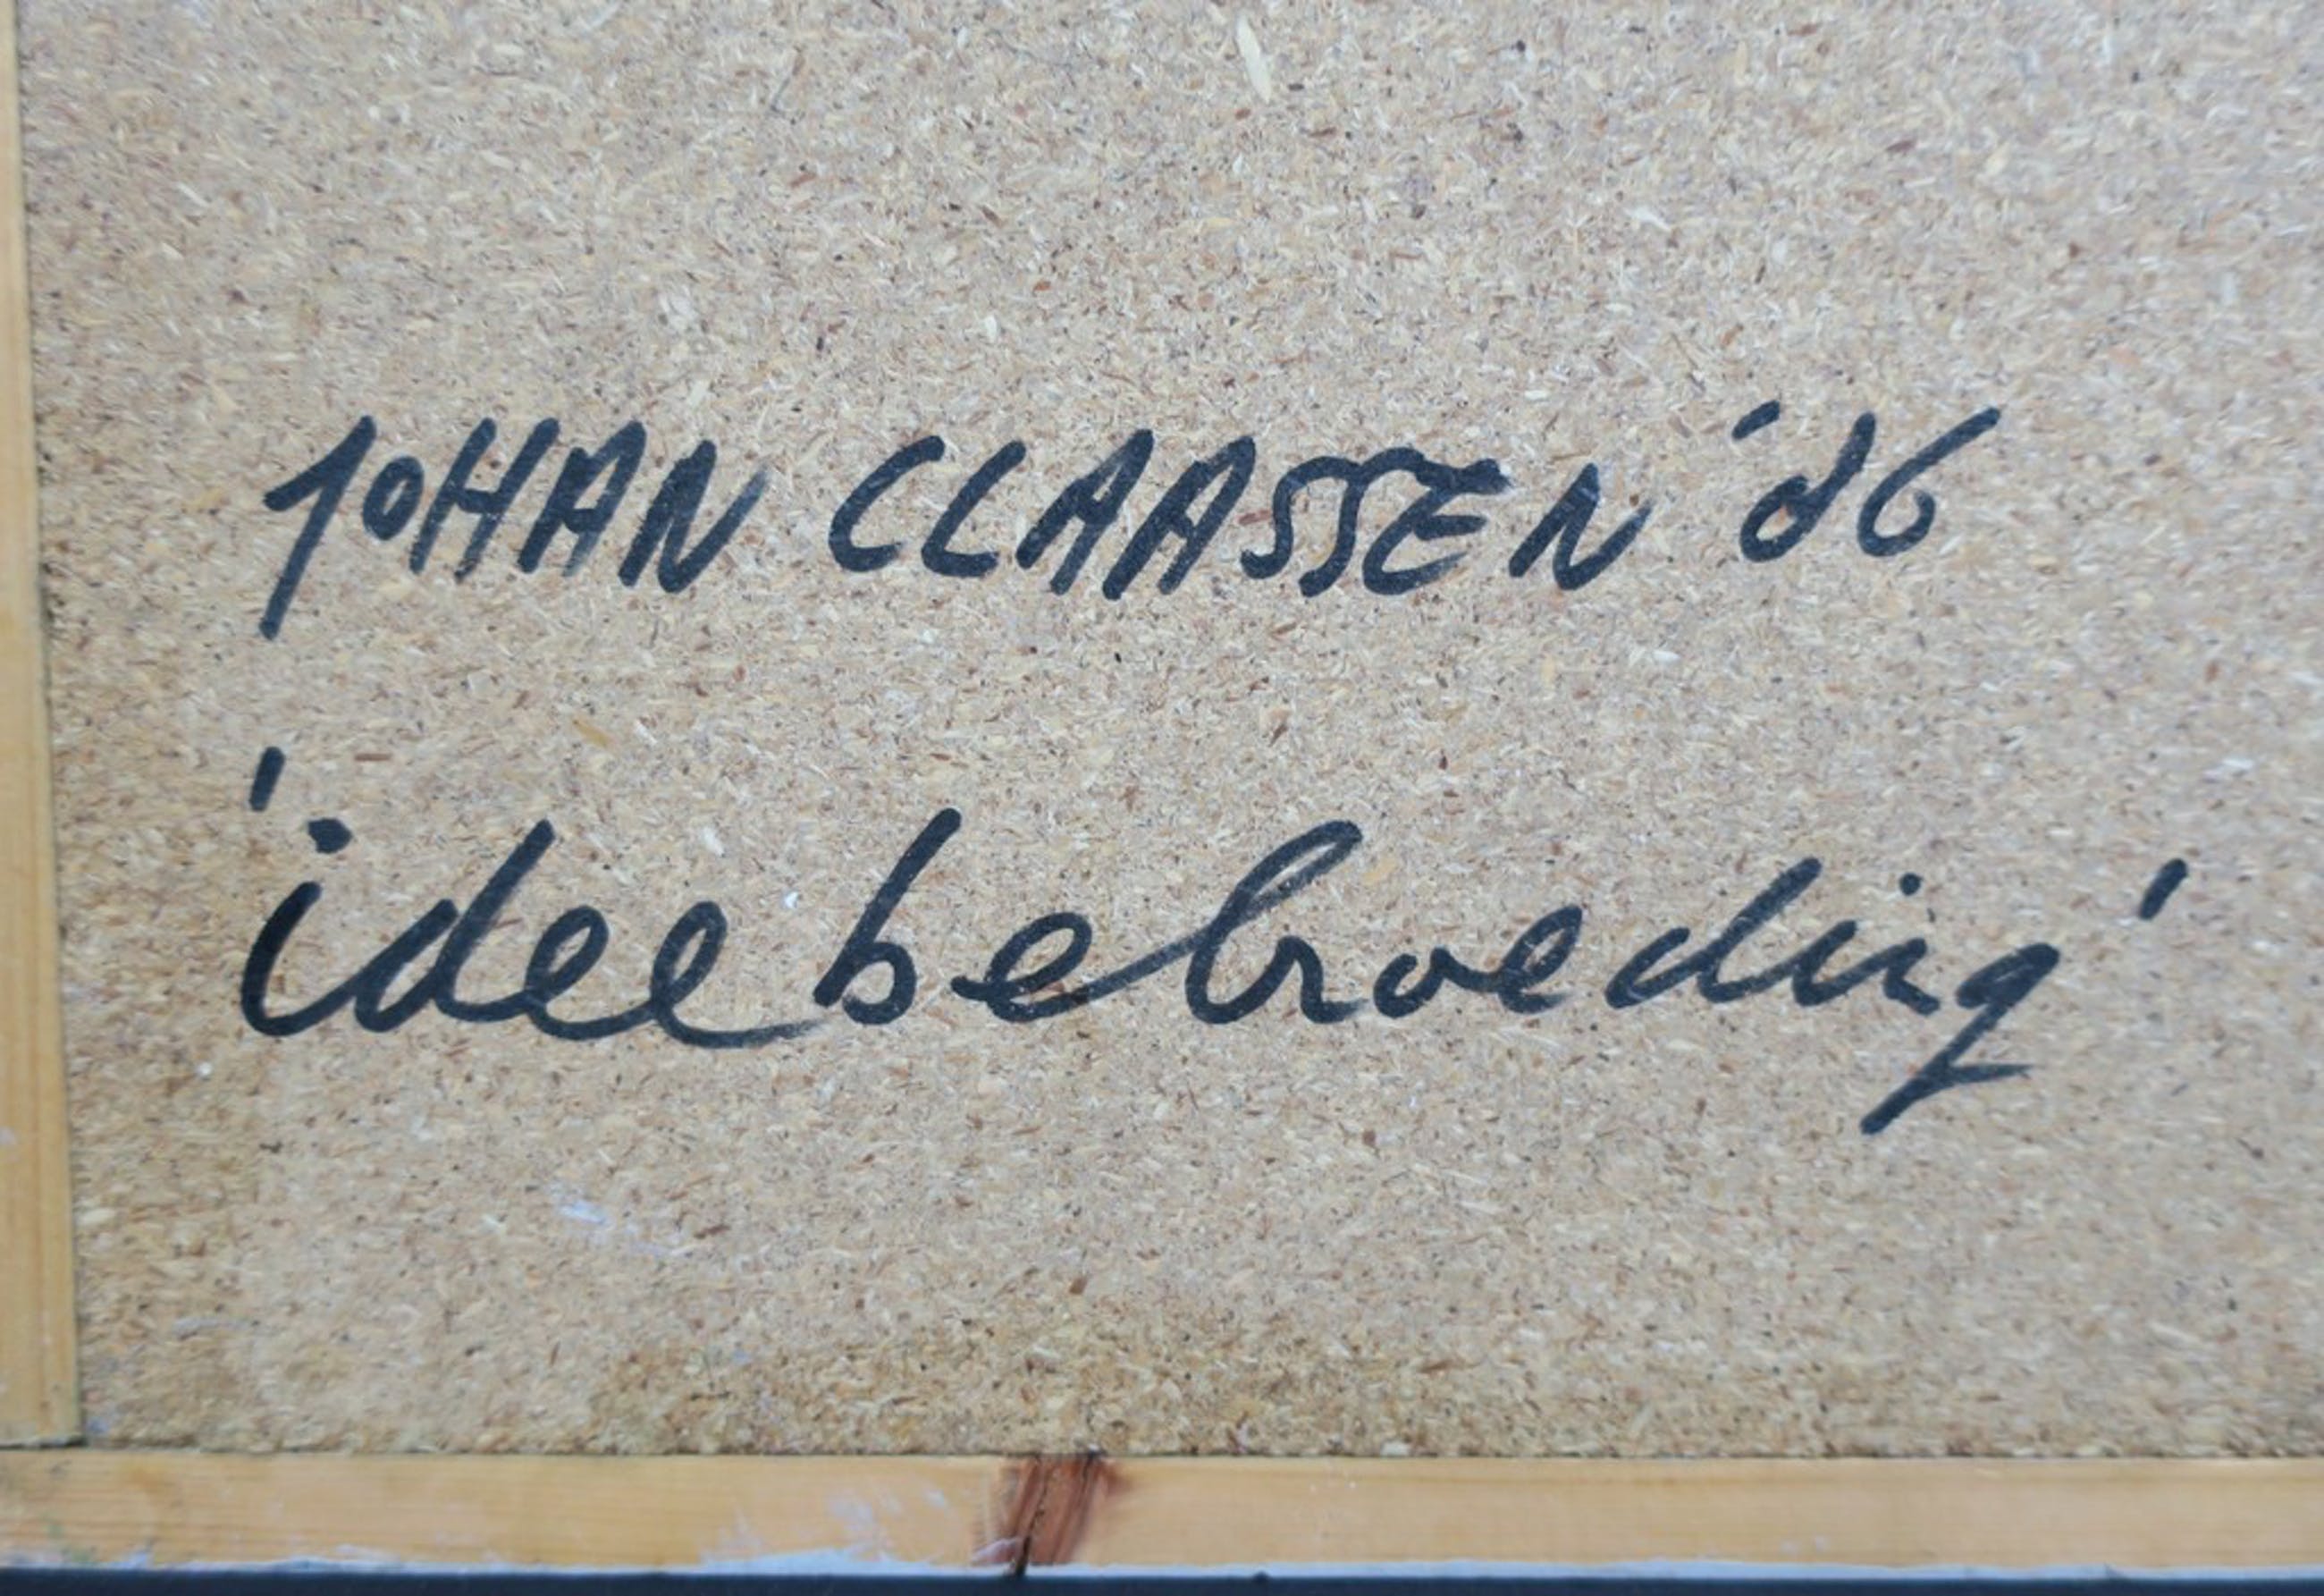 JOHAN CLAASSEN '06
'idee bebroeding'